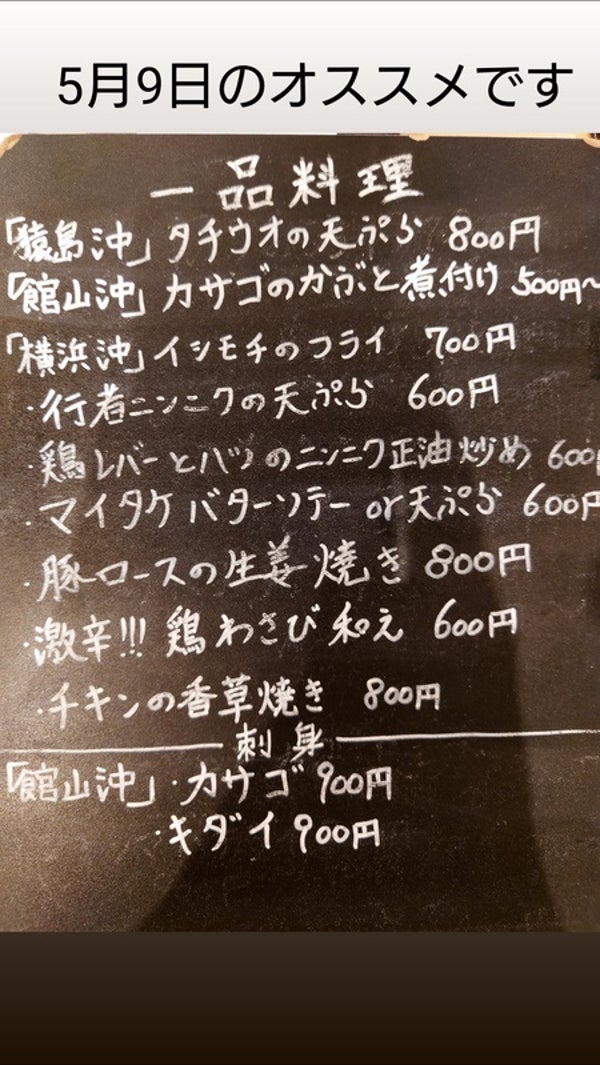 5月9日のオススメです
一品料理
「猿島沖」タチウオの天ぷら 800円
「館山沖」カサゴのかぶと煮付け 500円〜
「横浜沖」イシモチのフライ 700円
・行者ニンニクの天ぷら 600円
・鶏レバーとハツのニンニク正油炒め 600
・マイタケバターソテーor天ぷら 600円
・豚ロースの生姜焼き 800円
・激辛!!! 鶏わさび和え 600円
・チキンの香草焼き 800円
刺身
「館山沖」・カサゴ 900円
・キダイ 900円